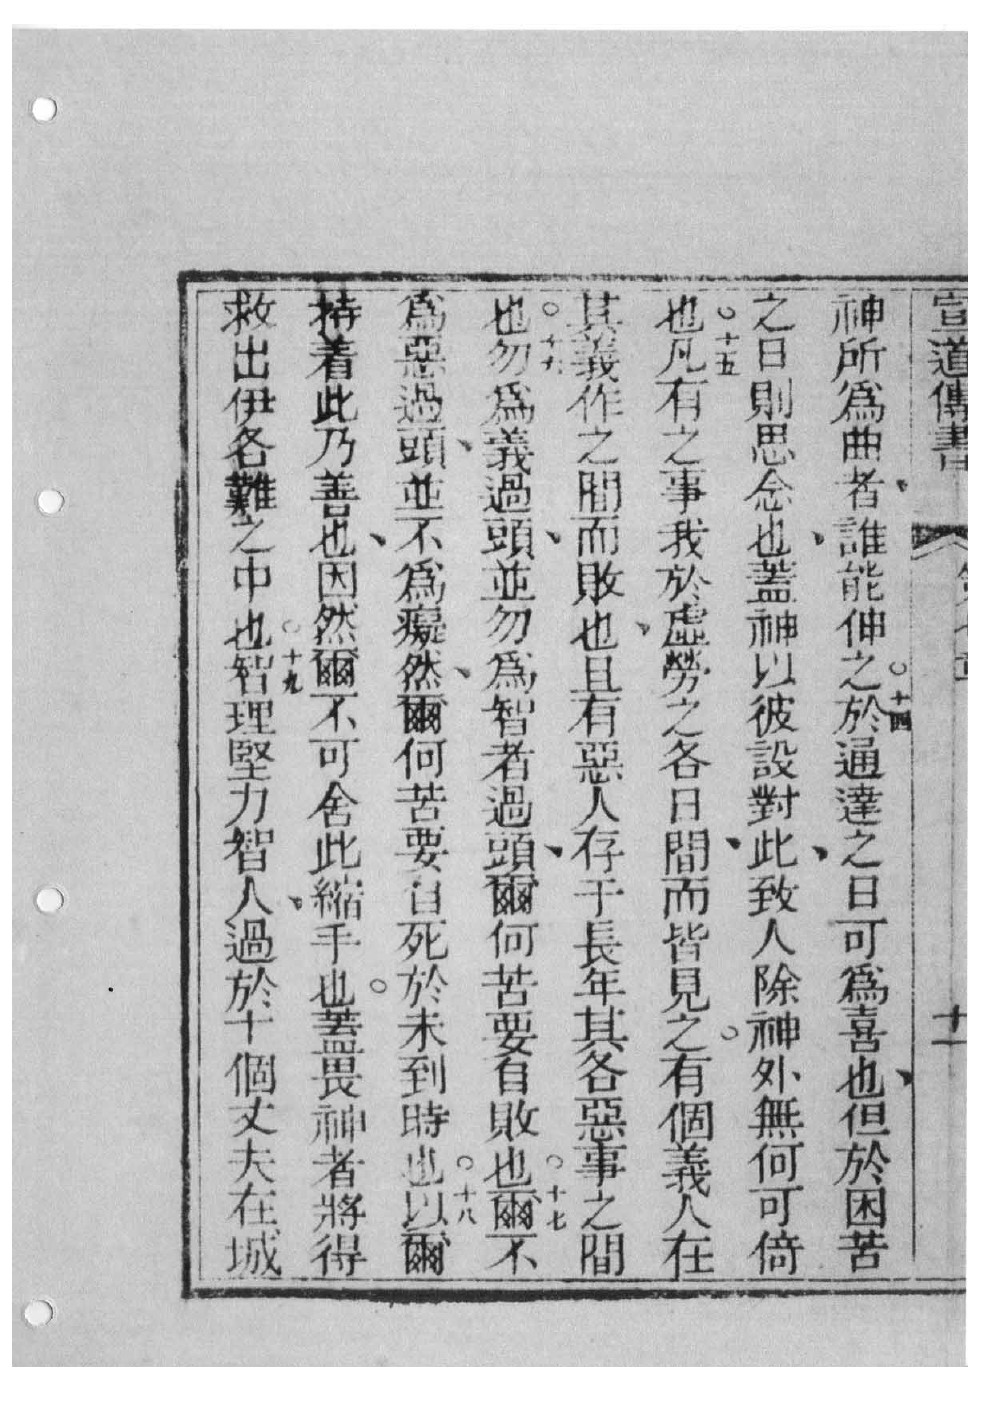 宣道傳書 第七章 十一
神所為曲者、誰能伸之○十四於通達之日可為喜也、但於困苦
之日則思念也、蓋神以彼設對此、致人除神外無何可倚
也○十五凡有之事我於虛勞之各日間、而皆見之○有個義人在
其義作之間而敗也、且有惡人存于長年其各惡事之間
也○十六勿為義過頭、並勿為智者過頭、爾何苦要自敗也○十七爾不
為惡過頭、並不為癡然、爾何苦要自死於未到時也○十八以爾
持着此乃善也、因然爾不可舍此縮手也○蓋畏神者將得
救出伊各難之中也○十九智理堅力智人、過於十個丈夫在城